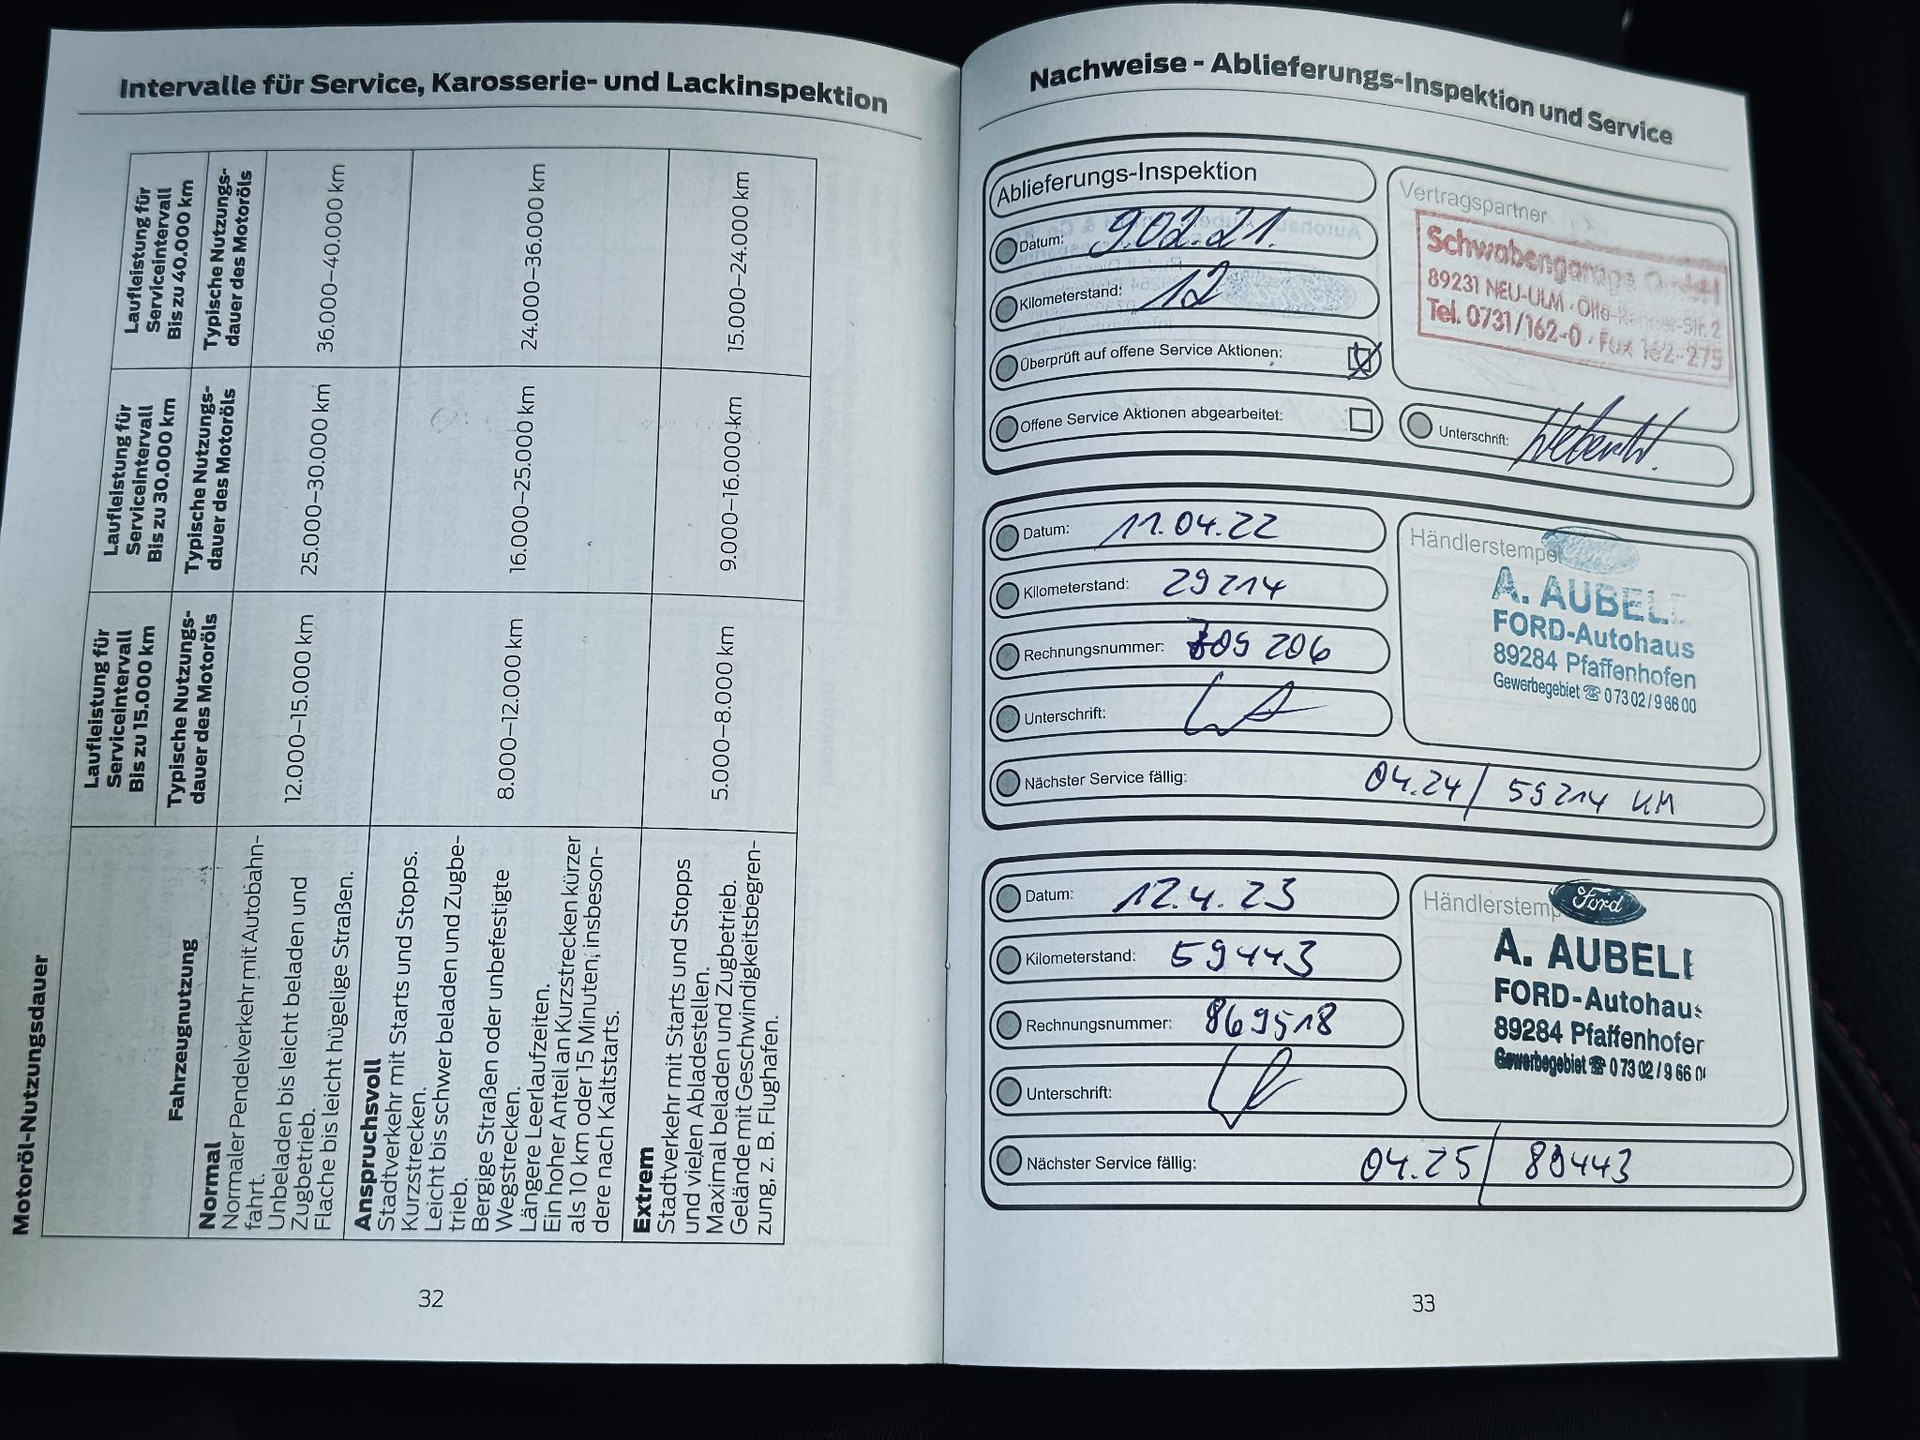 Intervalle für Service, Karosserie- und Lackinspektion
Motoröl-Nutzungsdauer
Fahrzeugnutzung
Laufleistung für
Serviceintervall
Bis zu 15.000 km
Laufleistung für
Serviceintervall
Bis zu 30.000 km
Laufleistung für
Serviceintervall
Bis zu 40.000 km
Typische Nutzungs-
dauer des Motoröls
Typische Nutzungs-
dauer des Motoröls
Typische Nutzungs-
dauer des Motoröls
Normal
Normaler Pendelverkehr mit Autobahn-
fahrt.
Unbeladen bis leicht beladen und
Zugbetrieb.
Flache bis leicht hügelige Straßen.
12.000–15.000 km
25.000–30.000 km
36.000–40.000 km
Anspruchsvoll
Stadtverkehr mit Starts und Stopps.
Kurzstrecken.
Leicht bis schwer beladen und Zugbe-
trieb.
Bergige Straßen oder unbefestigte
Wegstrecken.
Längere Leerlaufzeiten.
Ein hoher Anteil an Kurzstrecken kürzer
als 10 km oder 15 Minuten, insbeson-
dere nach Kaltstarts.
8.000–12.000 km
16.000–25.000 km
24.000–36.000 km
Extrem
Stadtverkehr mit Starts und Stopps
und vielen Abladestellen.
Maximal beladen und Zugbetrieb.
Gelände mit Geschwindigkeitsbegren-
zung, z. B. Flughafen.
5.000–8.000 km
9.000–16.000 km
15.000–24.000 km
32
Nachweise - Ablieferungs-Inspektion und Service
Ablieferungs-Inspektion
Datum: 9.02.21.
Kilometerstand: 12
Überprüft auf offene Service Aktionen:
Offene Service Aktionen abgearbeitet:
Vertragspartner
Schwabengarage GmbH
89231 NEU-ULM · Otto-Renner-Str. 2
Tel. 0731/162-0 · Fax 162-275
Unterschrift:
Datum: 11.04.22
Kilometerstand: 29214
Rechnungsnummer: 809 206
Unterschrift:
Nächster Service fällig: 04.24 / 59214 KM
Händlerstempel
A. AUBEL
FORD-Autohaus
89284 Pfaffenhofen
Gewerbegebiet ☏ 0 73 02 / 9 66 00
Datum: 12.4.23
Kilometerstand: 59443
Rechnungsnummer: 869518
Unterschrift:
Nächster Service fällig: 04.25 / 89443
Händlerstemp
Ford
A. AUBEL
FORD-Autohaus
89284 Pfaffenhofer
Gewerbegebiet ☏ 0 73 02 / 9 66 0
33